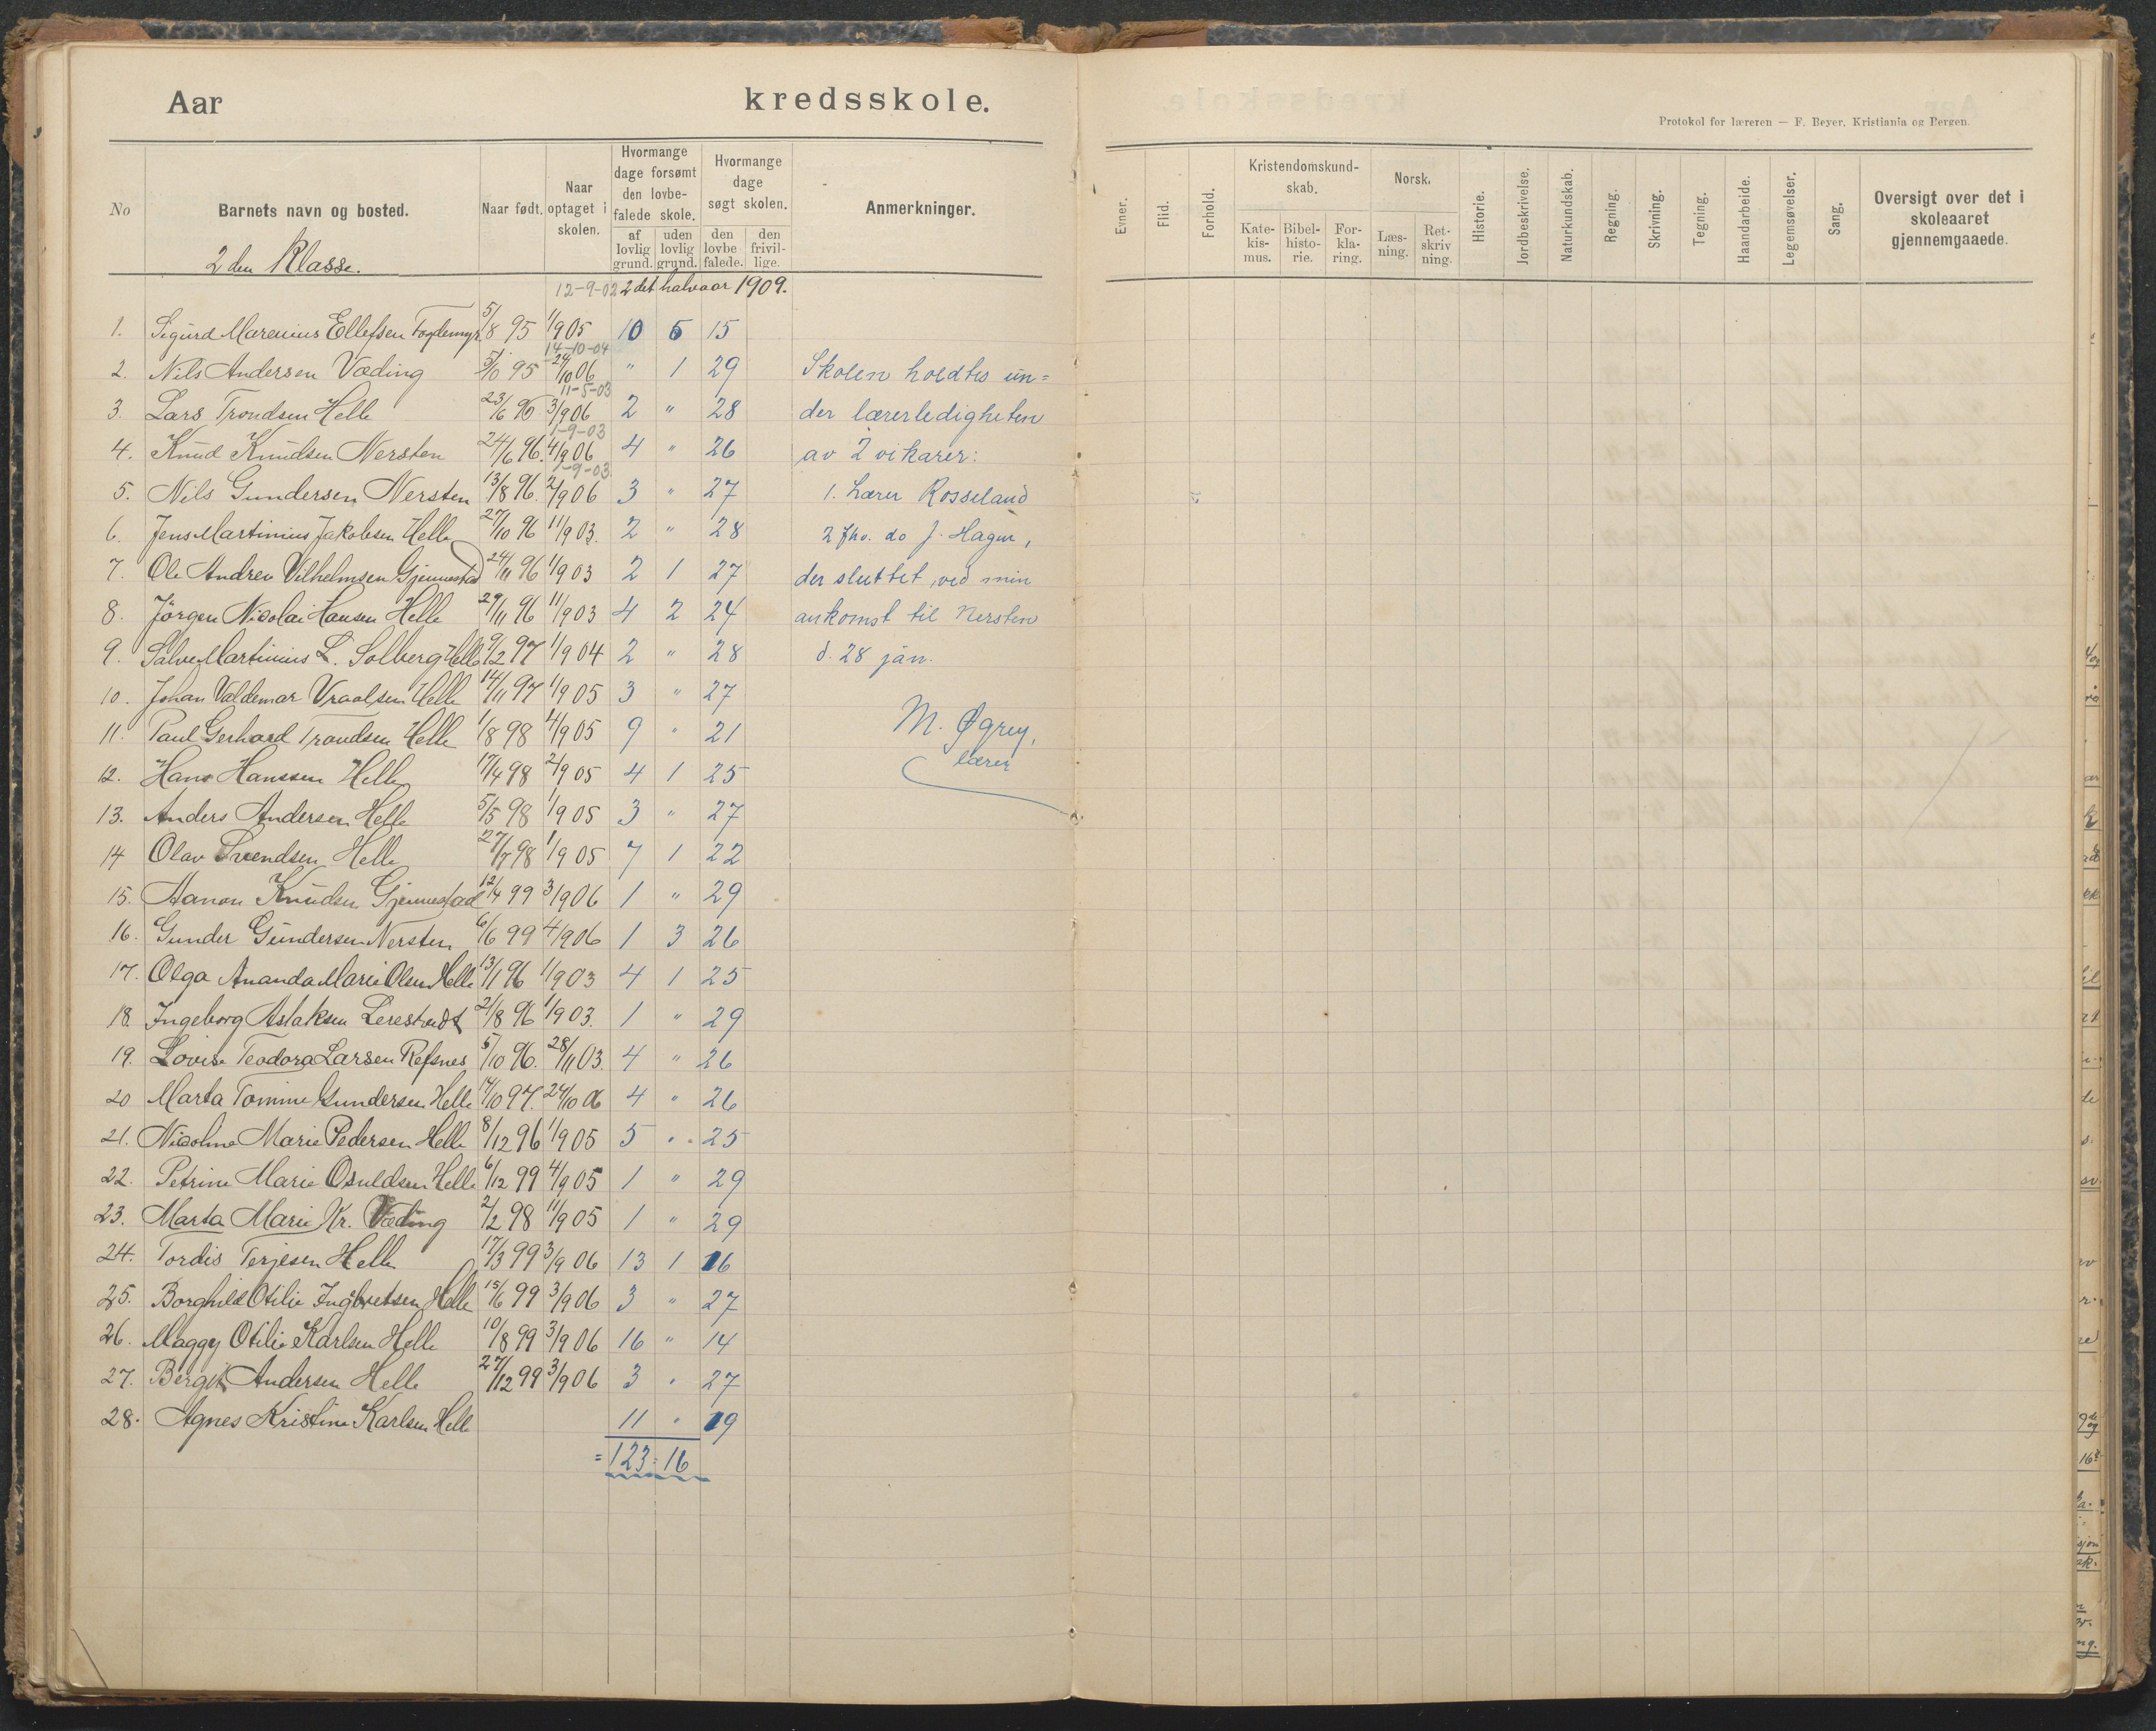 Aar kredsskole.
No
Barnets navn og bosted.
Naar født.
Naar optaget i skolen.
Hvormange dage forsømt den lovbefalede skole.
af lovlig grund.
uden lovlig grund.
Hvormange dage søgt skolen.
den lovbefalede.
den frivillige.
Anmerkninger.
2 den Klasse.
12-9-02 2 det halvaar 1909.
1. Sigurd Marenius Ellefsen 5/8 95 1/9 05 10 6 15
14-10-04
2. Nils Andersen Væding 5/10 95 24/10 06 " 1 29
11-5-03
3. Lars Trondsen Helle 23/6 96 3/9 06 2 " 28
1-9-03
4. Knud Knudsen Nersten 24/6 96. 4/9 06 4 " 26
1-9-03.
5. Nils Gundersen Nersten 13/8 96. 2/9 06 3 " 27
6. Jens Martinius Jakobsen Helle 27/10 96 11/9 03. 2 " 28
7. Ole Andrev Vilhelmsen Gjennestad 24/11 96 1/9 03 2 1 27
8. Jörgen Nicolai Hansen Helle 29/11 96 11/9 03 4 2 24
9. Salve Martinius L. Solberg Helle 9/2 97 1/9 04 2 " 28
10. Johan Valdemar Vraalsen Helle 14/11 97 1/9 05 3 " 27
11. Paul Gerhard Trondsen Helle 1/8 98 4/9 05 9 " 21
12. Hans Hanssen Helle 17/4 98 2/9 05 4 1 25
13. Anders Andersen Helle 5/5 98 1/9 05 3 " 27
14 Olav Svendsen Helle 27/7 98 1/9 05 7 1 22
15. Aanon Knudsen Gjennestad 12/4 99 3/9 06 1 " 29
16. Gunder Gundersen Nersten 6/6 99 4/9 06 1 3 26
17. Olga Ananda Marie Olsen Helle 13/1 96 1/9 03 4 1 25
18. Ingeborg Aslaksen Lerestvedt 21/8 96 1/9 03. 1 " 29
19. Lovise Teodora Larsen Refsnes 5/10 96. 28/11 03. 4 " 26
20 Marta Tomine Gundersen Helle 14/10 97. 24/10 06 4 " 26
21. Nicoline Marie Pedersen Helle 8/12 96 1/9 05 5 " 25
22. Petrine Marie Osuldsen Helle 6/12 99 4/9 05 1 " 29
23. Marta Marie Kr. Væding 2/2 98 11/9 05 1 " 29
24. Tordis Terjesen Helle 17/3 99 3/9 06 13 1 16
25. Borghild Otilie Ingbretsen Helle 15/6 99 3/9 06 3 " 27
26. Maggy Otilie Karlsen Helle 10/8 99 3/9 06 16 " 14
27. Bergit Andersen Helle 27/12 99 3/9 06 3 " 27
28. Agnes Kristine Karlsen Helle 11 " 19
= 123 = 16
Skolen holdtes un=
der lærerledigheten
av 2 vikarer:
1. Lærer Rosseland
2 fhv. do J. Hagen,
der sluttet, ved min
ankomst til Nersten
d. 28 jan.
M. Øgrey,
lærer
Protokol for læreren — F. Beyer, Kristiania og Bergen.
Evner.
Flid.
Forhold.
Kristendomskundskab.
Katekismus.
Bibelhistorie.
Forklaring.
Norsk.
Læsning.
Retskrivning.
Historie.
Jordbeskrivelse.
Naturkundskab.
Regning.
Skrivning.
Tegning.
Haandarbeide.
Legemsøvelser.
Sang.
Oversigt over det i
skoleaaret
gjennemgaaede.